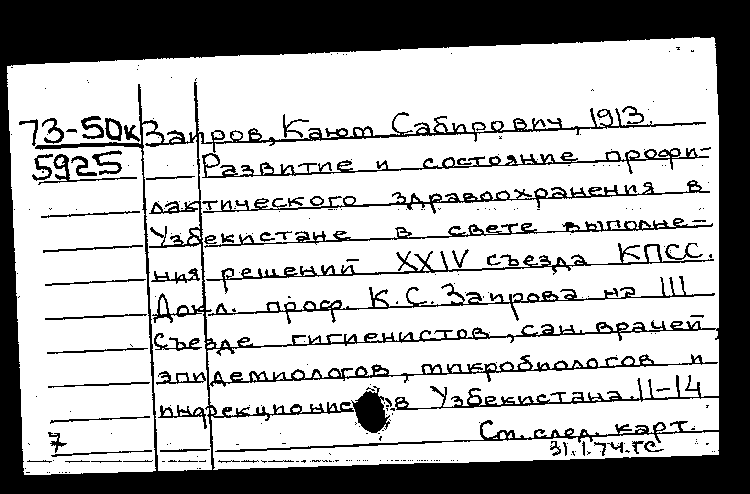 73-50к Заиров, Каюм Сабирович, 1913.
5925 Развитие и состояние профи-
лактического здравоохранения в
Узбекистане в свете выполне-
ния решений XXIV съезда КПСС.
Докл. проф. К.С. Заирова на III
съезде гигиенистов, сан. врачей,
эпидемиологов, микробиологов и
инфекционистов Узбекистана. 11-14
См. след. карт.
7 31.I.74.ГС